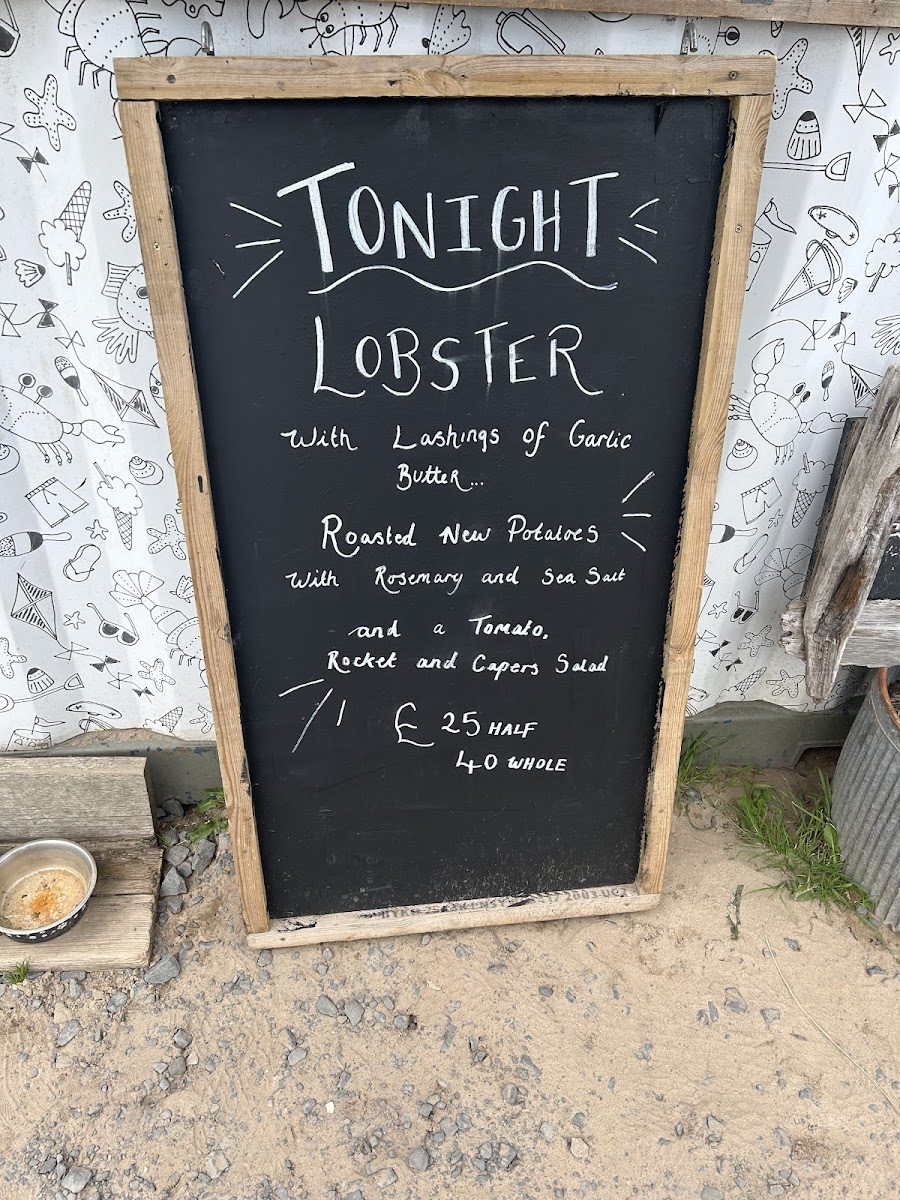 TONIGHT
LOBSTER
With Lashings of Garlic
Butter...
Roasted New Potatoes
With Rosemary and Sea Salt
and a Tomato,
Rocket and Capers Salad
£ 25 HALF
40 WHOLE